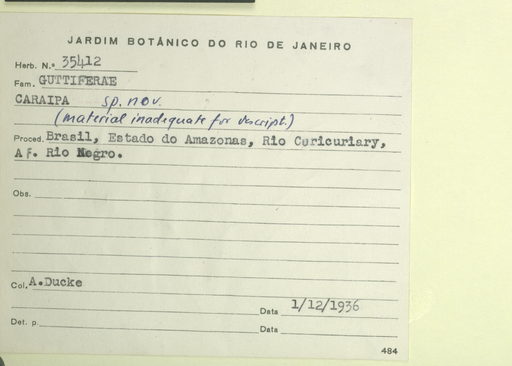 JARDIM BOTÂNICO DO RIO DE JANEIRO
Herb. N.º 35412
Fam. GUTTIFERAE
CARAIPA sp. nov.
(material inadequate for descript.)
Proced. Brasil, Estado do Amazonas, Rio Curicuriary,
Af. Rio Negro.
Obs.
Col. A.Ducke
Data 1/12/1936
Det. p. Data
484